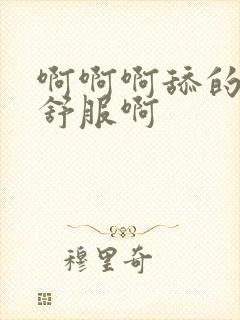 啊啊啊舔的
舒服啊
穆里奇